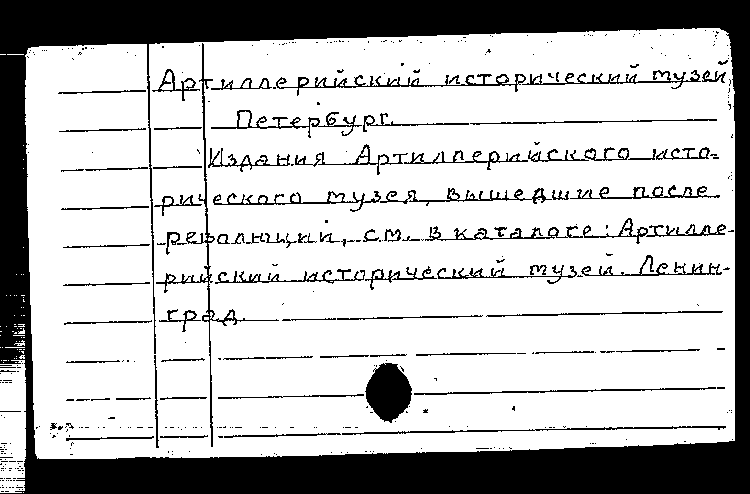 Артиллерийский исторический музей
Петербург.
Издания Артиллерийского исто-
рического музея, вышедшие после
революции, см. в каталоге: Артилле-
рийский исторический музей. Ленин-
град.